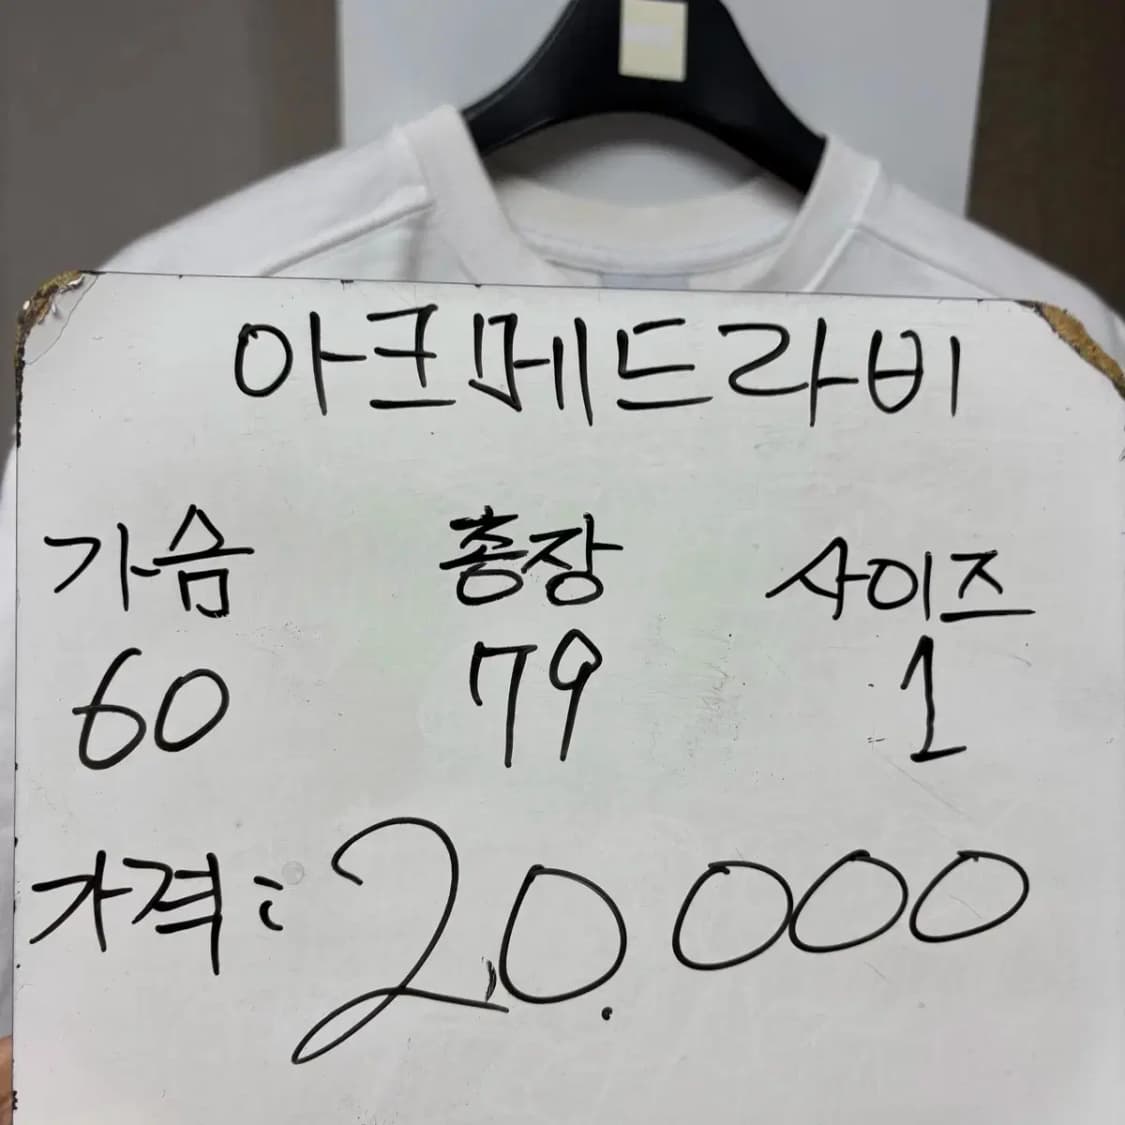 아크메드라비
가슴 총장 사이즈
60 79 1
가격: 20.000